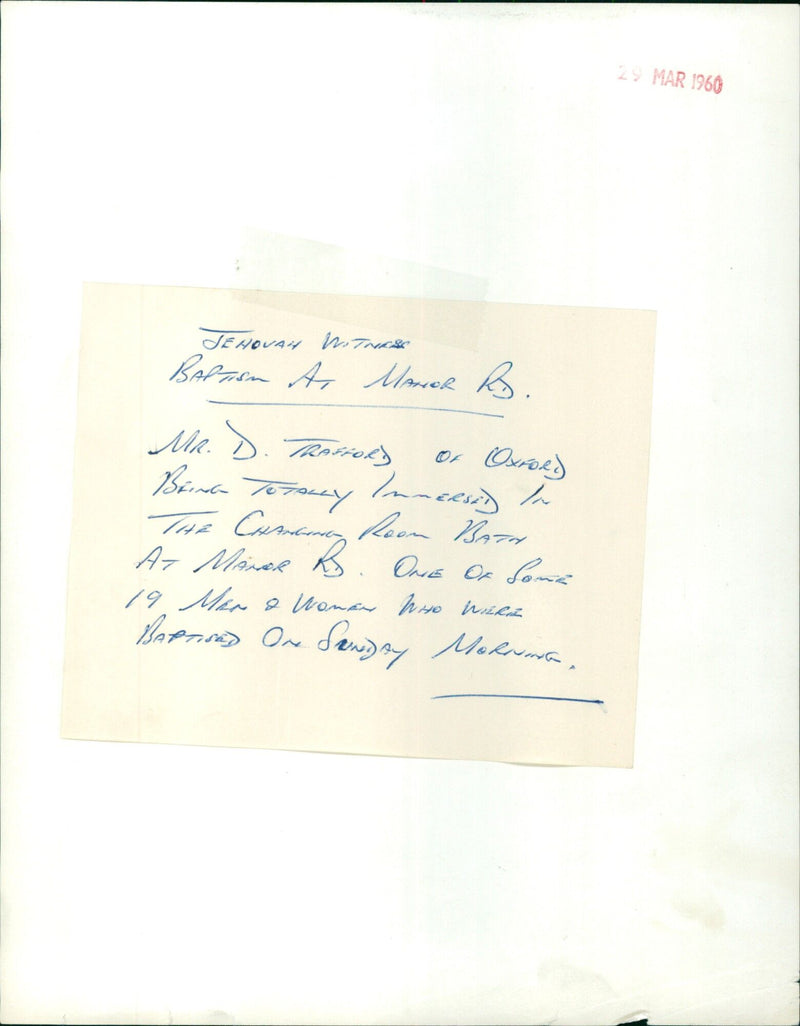 29 MAR 1960
JEHOVAH WITNESS
BAPTISM AT MANOR RD.
MR. D. TRAFFORD OF OXFORD
BEING TOTALLY IMMERSED IN
THE CHANGING ROOM BATH
AT MANOR RD. ONE OF SOME
19 MEN & WOMEN WHO WERE
BAPTISED ON SUNDAY MORNING.